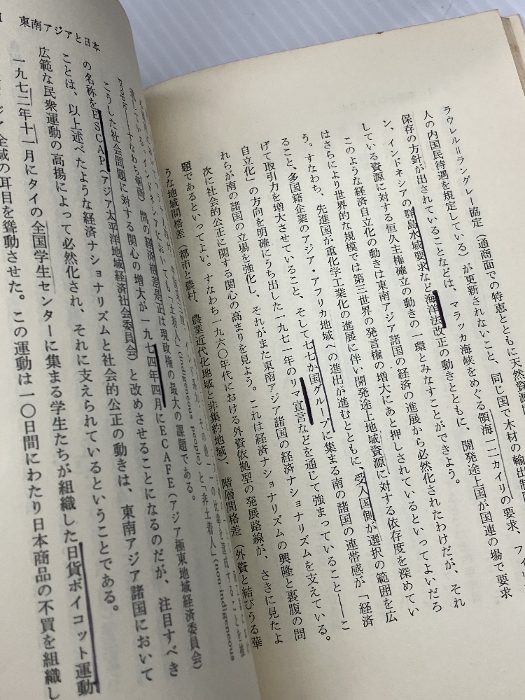 ラウレル＝ラングレー協定（通商面での特恵とともに天然資源
人の内国民待遇を規定している）が更新されないこと、同じ国で木材の輸出制
保存の方針が出されていることなどは、マラッカ海峡をめぐる領海一二カイリの要求、フィ
ン、インドネシアの群島水域要求など海洋法改正の動きとともに、開発途上国が国連の場で要求
している資源に対する恒久主権確立の動きの一環とみなすことができよう。
このような経済自立化の動きは東南アジア諸国の経済の進展から必然化されたわけだが、それ
はさらにより世界的な規模では第三世界の発言権の増大にあと押しされているといってよいだろ
う。すなわち、先進国が重化学工業化の進展に伴い開発途上地域資源に対する依存度を深めてい
ること、多国籍企業のアジア・アフリカ地域への進出が進むとともに、受入国側が選択の範囲を広
げて取引力を増大させていること、そして七七か国グループに集まる南の諸国の連帯感が「経済
自立化」の方向を明確にうち出した一九七一年のリマ宣言などを通じて強まっていること――こ
れらが南の諸国の立場を強化し、それがまた東南アジア諸国の経済ナショナリズムを支えている。
次に社会的公正に関する関心の高まりを見よう。これは経済ナショナリズムの興隆と裏腹の問
題であるといってよい。すなわち、一九六〇年代における外資依拠型の発展路線が、さきに見たよ
うな地域間格差（都市と農村、農業近代化地域と非集約地域）、階層間格差（外資と結びうる華
最大の課題である。
こうした社会問題に対する関心の増大が一九七四年四月にECAFE（アジア極東地域経済委員会）
の名称をESCAP（アジア太平洋地域経済社会委員会）と改めさせることになるのだが、注目すべき
ことは、以上述べたような経済ナショナリズムと社会的公正の動きは、東南アジア諸国において
広範な民衆運動の高揚によって必然化され、それに支えられているということである。
一九七二年十一月にタイの全国学生センターに集まる学生たちが組織した日貨ボイコット運動
アジア全域の耳目を聳動させた。この運動は一〇日間にわたり日本商品の不買を組織し
東南アジアと日本